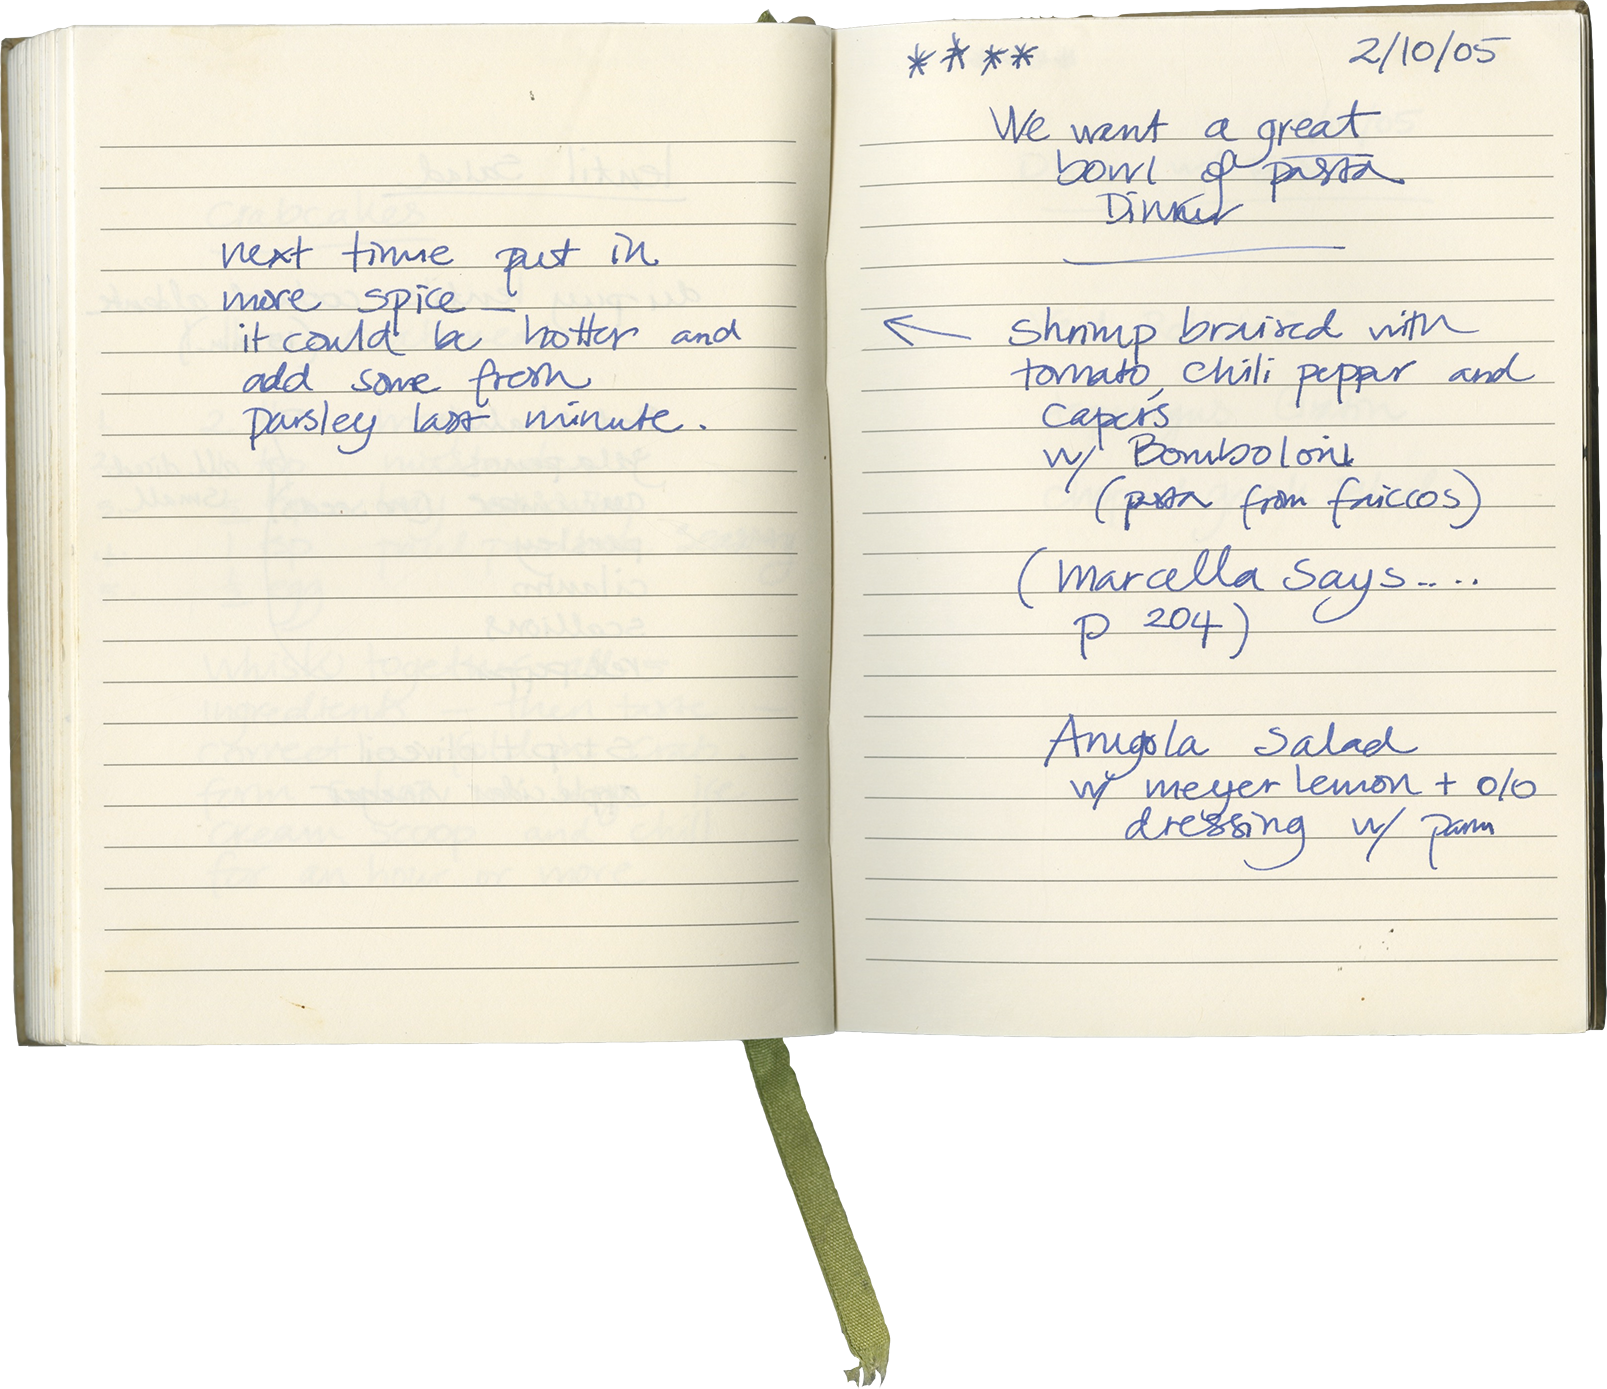 next time put in
more spice —
it could be hotter and
add some fresh
parsley last minute.
**** 2/10/05
We want a great
bowl of pasta
Dinner
← Shrimp braised with
tomato, chili pepper and
capers
w/ Bomboloni
(pasta from faiccos)
(Marcella Says....
p 204)
Arugola Salad
w/ meyer lemon + o/o
dressing w/ parm